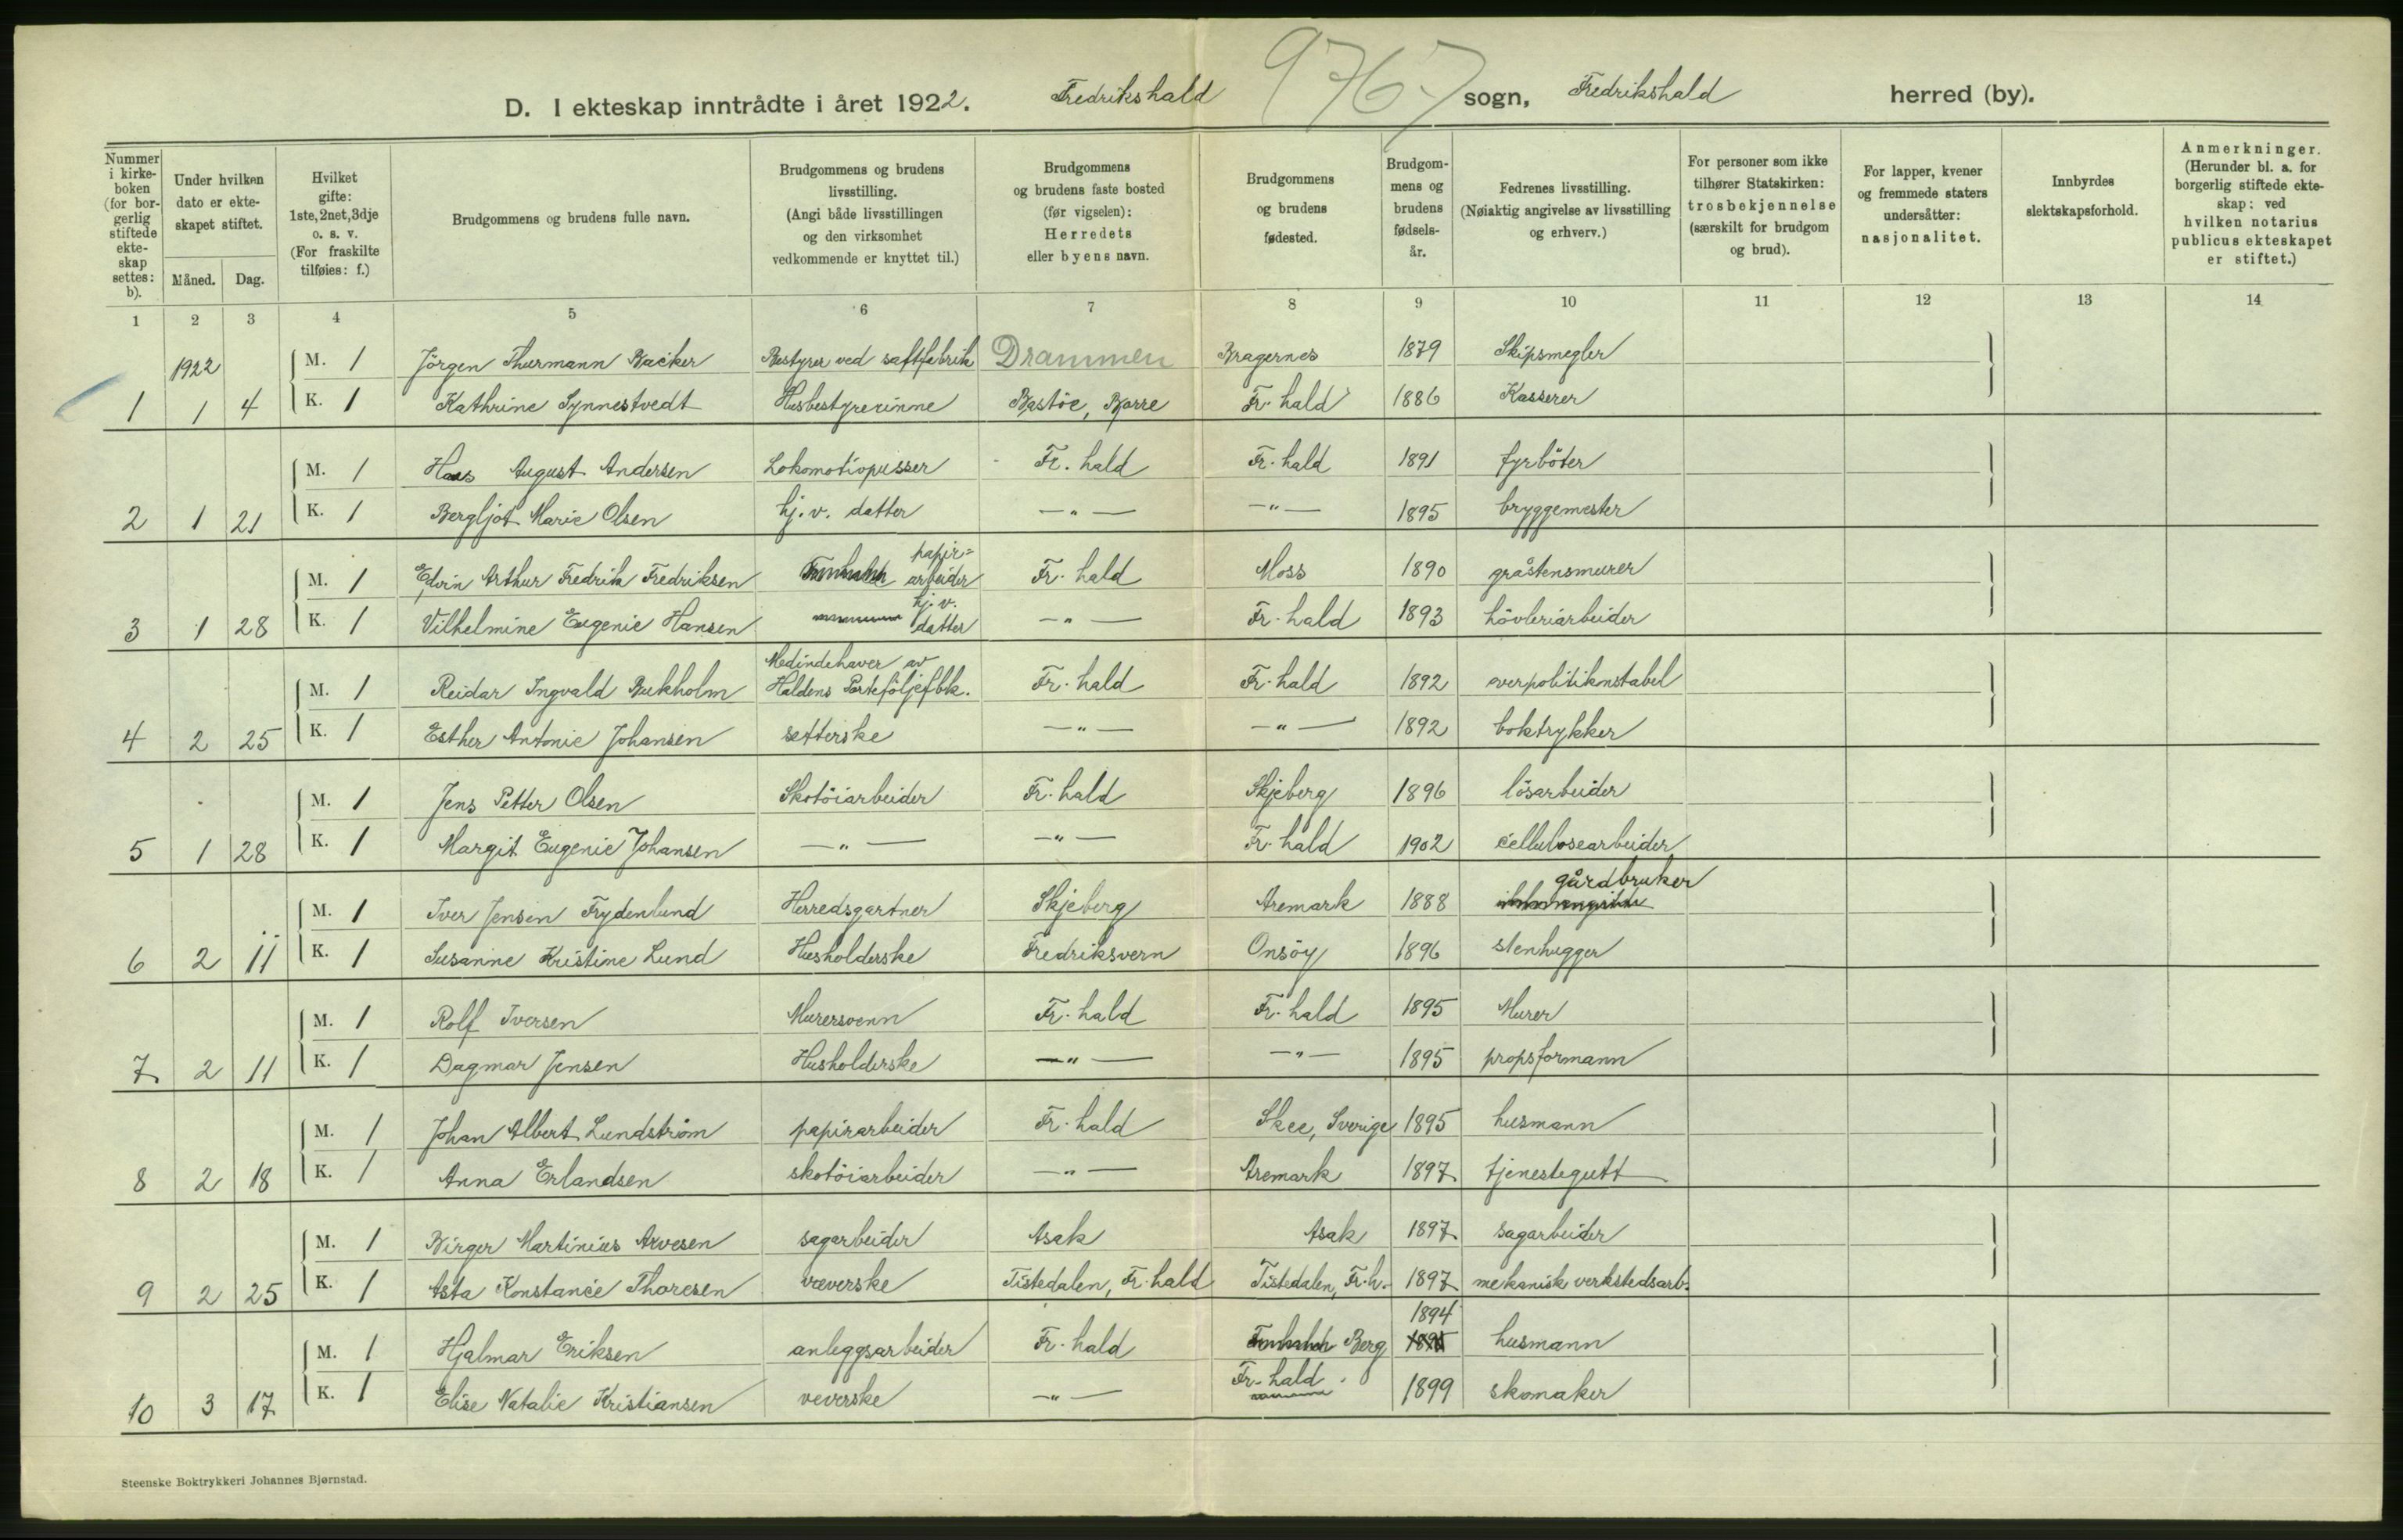 9767
D. I ekteskap inntrådte i året 1922. Fredrikshald sogn, Fredrikshald herred (by).
Nummer i kirkeboken (for borgerlig stiftede ekteskap settes: b).
Under hvilken dato er ekteskapet stiftet.
Måned. Dag.
Hvilket gifte: 1ste, 2net, 3dje o. s. v. (For fraskilte tilføies: f.)
Brudgommens og brudens fulle navn.
Brudgommens og brudens livsstilling. (Angi både livsstillingen og den virksomhet vedkommende er knyttet til.)
Brudgommens og brudens faste bosted (før vigselen): Herredets eller byens navn.
Brudgommens og brudens fødested.
Brudgommens og brudens fødselsår.
Fedrenes livsstilling. (Nøiaktig angivelse av livsstilling og erhverv.)
For personer som ikke tilhører Statskirken: trosbekjennelse (særskilt for brudgom og brud).
For lapper, kvener og fremmede staters undersåtter: nasjonalitet.
Innbyrdes slektskapsforhold.
Anmerkninger. (Herunder bl. a. for borgerlig stiftede ekteskap: ved hvilken notarius publicus ekteskapet er stiftet.)
1 2 3 4 5 6 7 8 9 10 11 12 13 14
1922
M. 1 Jörgen Thurmann Backer Bestyrer ved saftfabrik Drammen Bragernes 1879 Skipsmegler
1 1 4 K. 1 Kathrine Synnestvedt Husbestyrerinne Bastöe, Borre Fr.hald 1886 Kasserer
M. 1 Hans August Andersen Lokomotivpusser Fr.hald Fr.hald 1891 fyrböter
2 1 21 K. 1 Bergljot Marie Olsen hj.v. datter —"— —"— 1895 bryggemester
M. 1 Edvin Arthur Fredrik Fredriksen papir=arbeider Fr.hald Moss 1890 gråstensmurer
3 1 28 K. 1 Vilhelmine Eugenie Hansen hj.v. datter —"— Fr.hald 1893 hövleriarbeider
M. 1 Reidar Ingvald Buekholm Medindehaver av Haldens Porteföljefbk. Fr.hald Fr.hald 1892 overpolitikonstabel
4 2 25 K. 1 Esther Antonie Johansen setterske —"— —"— 1892 boktrykker
M. 1 Jens Petter Olsen Skotöiarbeider Fr.hald Skjeberg 1896 lösarbeider
5 1 28 K. 1 Margit Eugenie Johansen —"— —"— Fr.hald 1902 cellulosearbeider
M. 1 Iver Jensen Frydenlund Herredsgartner Skjeberg Aremark 1888 gårdbruker
6 2 11 K. 1 Susanne Kristine Lund Husholderske Fredriksvern Onsöy 1896 stenhugger
M. 1 Rolf Iversen Murersvenn Fr.hald Fr.hald 1895 Murer
7 2 11 K. 1 Dagmar Jensen Husholderske —"— —"— 1895 propsformann
M. 1 Johan Albert Lundström papirarbeider Fr.hald Skee, Sverige 1895 husmann
8 2 18 K. 1 Anna Erlandsen skotöiarbeider —"— Aremark 1897 tjenestegutt
M. 1 Birger Martinius Arvesen sagarbeider Asak Asak 1897 sagarbeider
9 2 25 K. 1 Asta Konstance Thoresen veverske Tistedalen, Fr.hald Tistedalen, Fr.h. 1897 mekanisk verkstedsarb.
M. 1 Hjalmar Eriksen anleggsarbeider Fr.hald Berg 1894 husmann
10 3 17 K. 1 Elise Natalie Kristiansen veverske —"— Fr.hald 1899 skomaker
Steenske Boktrykkeri Johannes Bjørnstad.